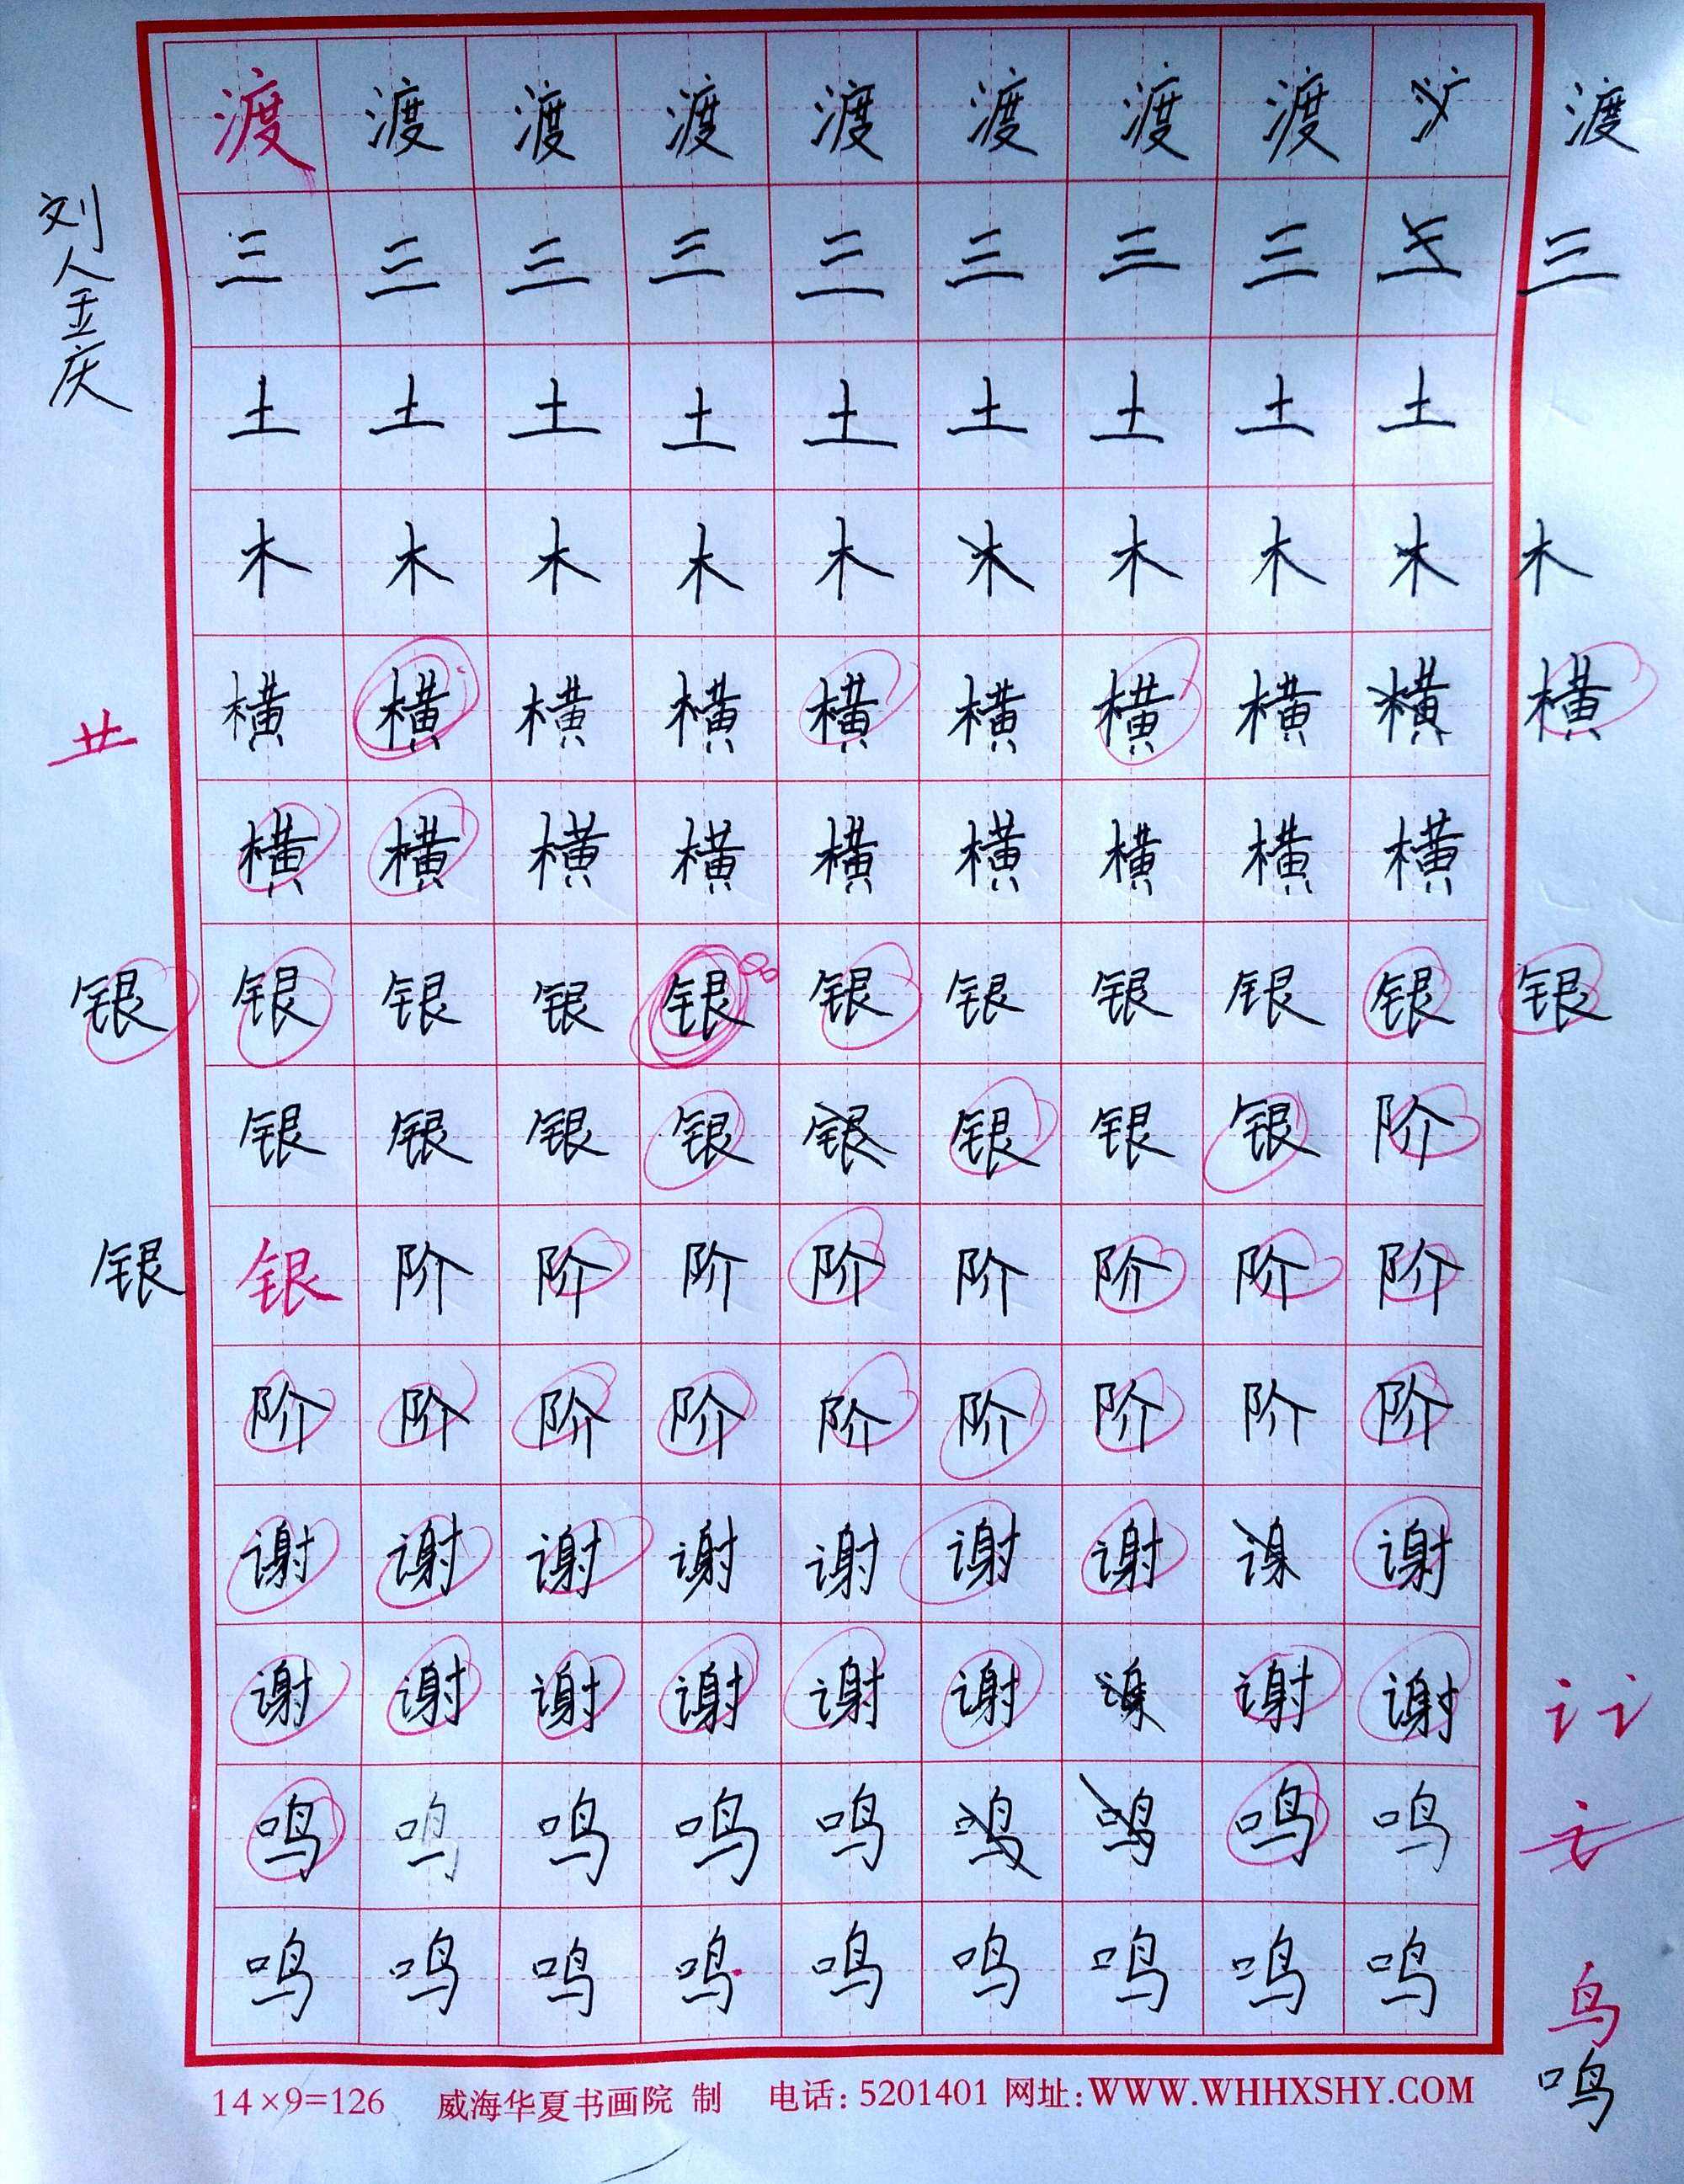 渡 渡 渡 渡 渡 渡 渡 渡 渡
三 三 三 三 三 三 三 三 三 三
土 土 土 土 土 土 土 土 土
木 木 木 木 木 木 木 木 木 木
横 横 横 横 横 横 横 横 横 横
横 横 横 横 横 横 横 横 横
银 银 银 银 银 银 银 银 银 银 银
银 银 银 银 银 银 银 银 阶
银 银 阶 阶 阶 阶 阶 阶 阶 阶
阶 阶 阶 阶 阶 阶 阶 阶 阶
谢 谢 谢 谢 谢 谢 谢 谢
谢 谢 谢 谢 谢 谢 谢 谢 讠 讠
鸣 鸣 鸣 鸣 鸣 鸣 鸣 鸣 鸣
鸣 鸣 鸣 鸣 鸣 鸣 鸣 鸣 鸣 鸟
鸣
刘金庆
14×9=126 威海华夏书画院 制 电话: 5201401 网址: WWW.WHHXSHY.COM